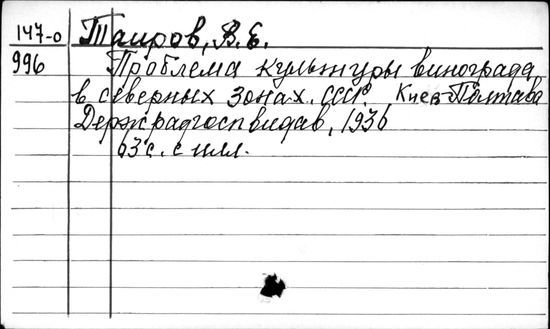 147-о Таиров, В. Е.
996 Проблема культуры винограда
в северных зонах СССР. Киев-Полтава
Держрадгоспвидав, 1936
63 с. с илл.